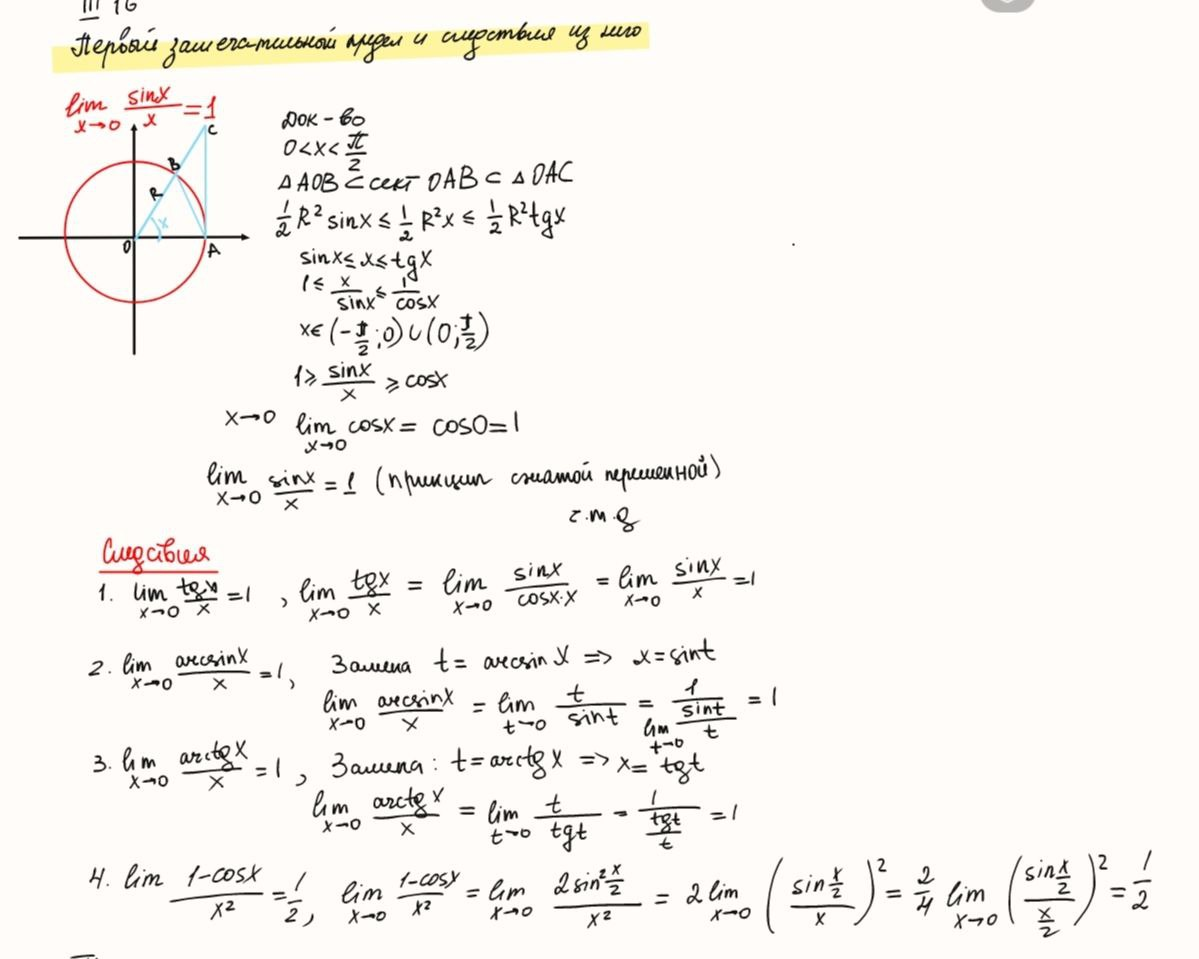 III 16
Первый замечательной предел и следствия из него
lim x→0 sinx/x = 1
C
B
R
x
O
A
Док-во
0<x<π/2
△AOB ⊂ сект OAB ⊂ △OAC
1/2 R² sinx ≤ 1/2 R²x ≤ 1/2 R²tgx
sinx ≤ x ≤ tgx
1 ≤ x/sinx ≤ 1/cosx
x∈(-π/2;0)∪(0;π/2)
1 ≥ sinx/x ≥ cosx
x→0 lim x→0 cosx = cos0=1
lim x→0 sinx/x = 1 (принцип сжатой переменной)
ч.т.д
Следствия
1. lim x→0 tgx/x = 1 , lim x→0 tgx/x = lim x→0 sinx/cosx·x = lim x→0 sinx/x = 1
2. lim x→0 arcsinx/x = 1, Замена t = arcsinx => x = sint
lim x→0 arcsinx/x = lim t→0 t/sint = 1/(lim t→0 sint/t) = 1
3. lim x→0 arctgx/x = 1 , Замена: t = arctgx => x = tgt
lim x→0 arctgx/x = lim t→0 t/tgt = 1/(tgt/t) = 1
4. lim 1-cosx/x² = 1/2, lim x→0 1-cosx/x² = lim x→0 2sin² x/2 / x² = 2 lim x→0 (sin x/2 / x)² = 2/4 lim x→0 (sin x/2 / x/2)² = 1/2